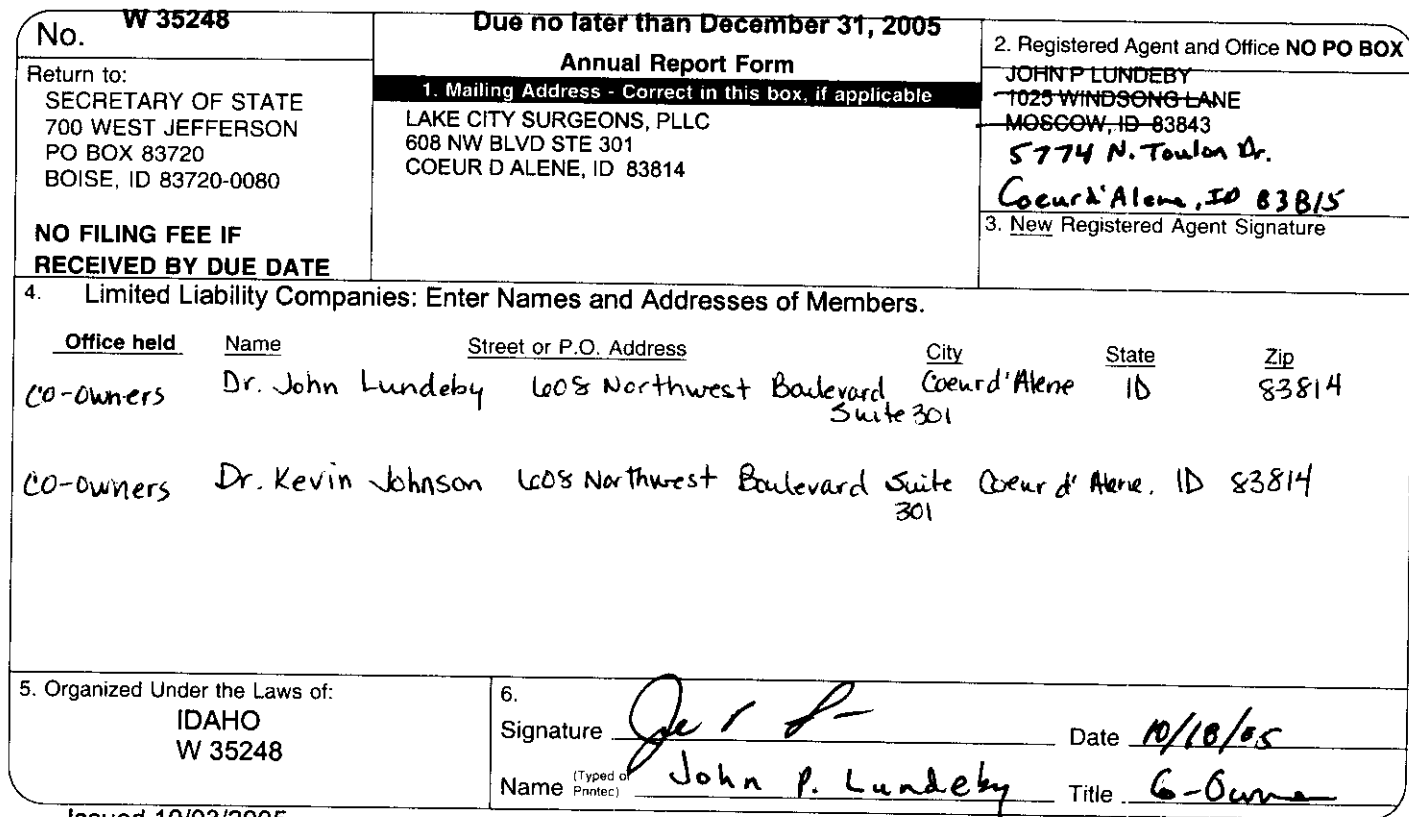 No. W 35248
Return to:
SECRETARY OF STATE
700 WEST JEFFERSON
PO BOX 83720
BOISE, ID 83720-0080
NO FILING FEE IF
RECEIVED BY DUE DATE
Due no later than December 31, 2005
Annual Report Form
1. Mailing Address - Correct in this box, if applicable
LAKE CITY SURGEONS, PLLC
608 NW BLVD STE 301
COEUR D ALENE, ID 83814
2. Registered Agent and Office NO PO BOX
JOHN P LUNDEBY
1025 WINDSONG LANE
MOSCOW, ID 83843
5774 N. Toulon Dr.
Coeur d'Alene, ID 83815
3. New Registered Agent Signature
4. Limited Liability Companies: Enter Names and Addresses of Members.
Office held Name Street or P.O. Address City State Zip
CO-Owners Dr. John Lundeby 608 Northwest Boulevard Coeur d'Alene ID 83814
Suite 301
CO-Owners Dr. Kevin Johnson 608 Northwest Boulevard Suite Coeur d' Alene, ID 83814
301
5. Organized Under the Laws of:
IDAHO
W 35248
6.
Signature Date 10/18/05
Name (Typed or Printed) John P. Lundeby Title Co-Owner
Issued 10/03/2005